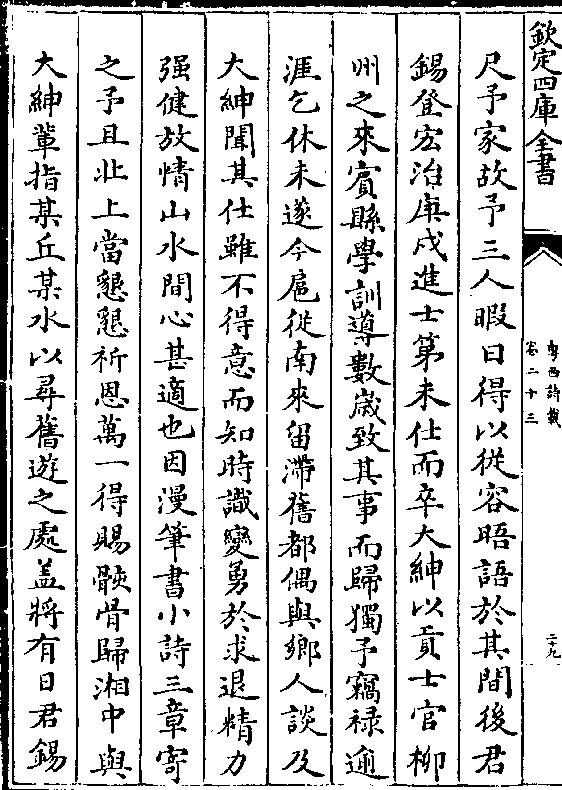 欽定四庫全書
粤西詩載
卷二十三
二十九
尺予家故予三人暇日得以從容晤語於其間後君
錫登宏治庚戌進士第未仕而卒大紳以貢士官柳
州之來賓縣學訓導數歲致其事而歸獨予竊禄逾
涯乞休未遂今扈從南來留滯舊都偶與鄉人談及
大紳聞其仕雖不得意而知時識變勇於求退精力
强健放情山水間心甚適也因漫筆書小詩三章寄
之予且壯上當懇懇祈恩萬一得賜骸骨歸湘中與
大紳輩指某丘某水以尋舊遊之處盖將有日君錫